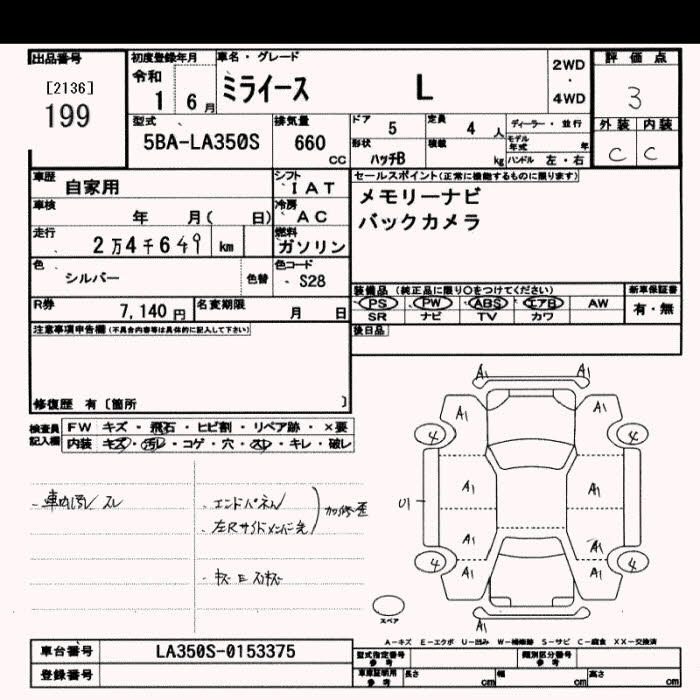 出品番号 初度登録年月 車名・グレード 2WD・4WD 評価点
[2136]
199
令和 1 6月 ミライース L 3
型式 排気量 ドア 5 定員 4人 ディーラー・並行 外装 内装
5BA-LA350S 660CC 形状 ハッチB 積載 kg モデル年式 年 ハンドル 左・右 C C
車歴 自家用 シフト IAT セールスポイント(正常に機能するものに限ります)
車検 年 月( 日) 冷房 AC メモリーナビ
走行 2万4千649km 燃料 ガソリン バックカメラ
色 シルバー 色替 色コード S28
装備品(純正品に限り○をつけてください) 新車保証書
R券 7,140円 名変期限 月 日 PS PW ABS エアB AW 有・無
SR ナビ TV カワ
注意事項申告欄(不具合内容等は具体的に記入して下さい) 後日品
修復歴 有〔箇所 〕
検査員記入欄 FW キズ・飛石・ヒビ割・リペア跡・×要
内装 キズ・汚レ・コゲ・穴・スレ・キレ・破レ
A1 A1
A1 A1
4 4
車内汚/スレ
・エンドパネル
・左Rサイドメンバー先
加修歪
U1 A1 A1
A1 A1
4 A1 A1 4
スペア
A1
A-キズ E-エクボ U-凹み W-補修跡 S-サビ C-腐食 XX-交換済
車台番号 LA350S-0153375 型式指定番号 参考 類別区分番号 参考
登録番号 車庫証明用 参考 長さ cm 幅 cm 高さ cm